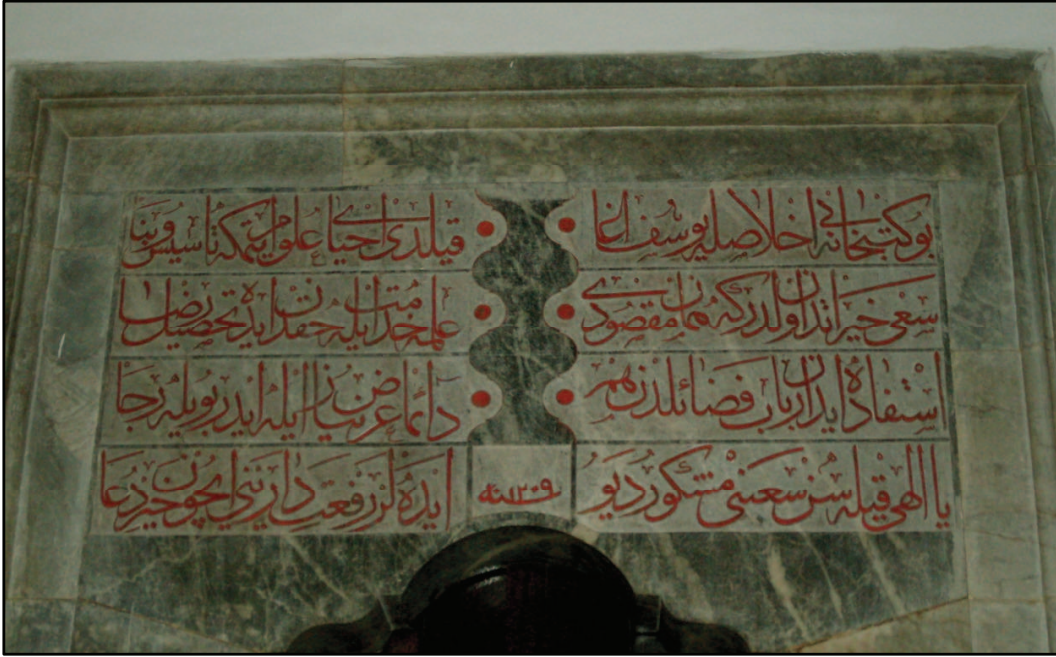 بو كتبخانه یی اخلاصله یوسف اغا
قیلدی احیای علوم ایتمکه تأسیس و بنا
سعی خیراتدن اولدر که همان مقصودی
علمه خدمت ایله حقدن ایده تحصیل رضا
استفاده ایدن ارباب فضائلدن هم
دائما عرض نیاز ایله ایدر بویله رجا
یا الهی قیله سن سعینی مشکور دیو
ایده لر رفعت دارینی ایچون خیر دعا
سنه ١٢٠٩